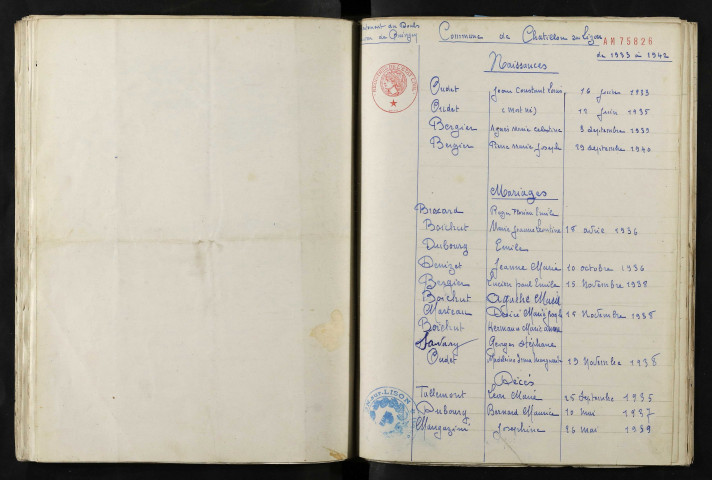 Commune de Chatillon sur Lizon
AM 75826
de 1933 à 1942
Naissances
Oudet Jean Constant Louis 16 1933
Oudet (mort né) 1935
Bergier Agnès Marie Célestine 3 septembre 1939
Bergier Pierre Marie Joseph 29 septembre 1940
Mariages
Brocard Roger Emile
Boichut Marie Jeanne Léontine 18 avril 1936
Dubourg Emile
Denizet Jeanne Marie 10 octobre 1936
Bergier Lucien Paul Emile 15 Novembre 1938
Boichut Agathe Marie
Marteau Désiré Marie Joseph 15 Novembre 1938
Boichut Germaine Marie
Savary Georges Stéphane
Oudet Madeleine Marguerite 19 Novembre 1938
Décès
Tallemont Léon Marie 25 Septembre 1935
Dubourg Bernard Maurice 10 mai 1937
Mangazini Joséphine 26 mai 1939